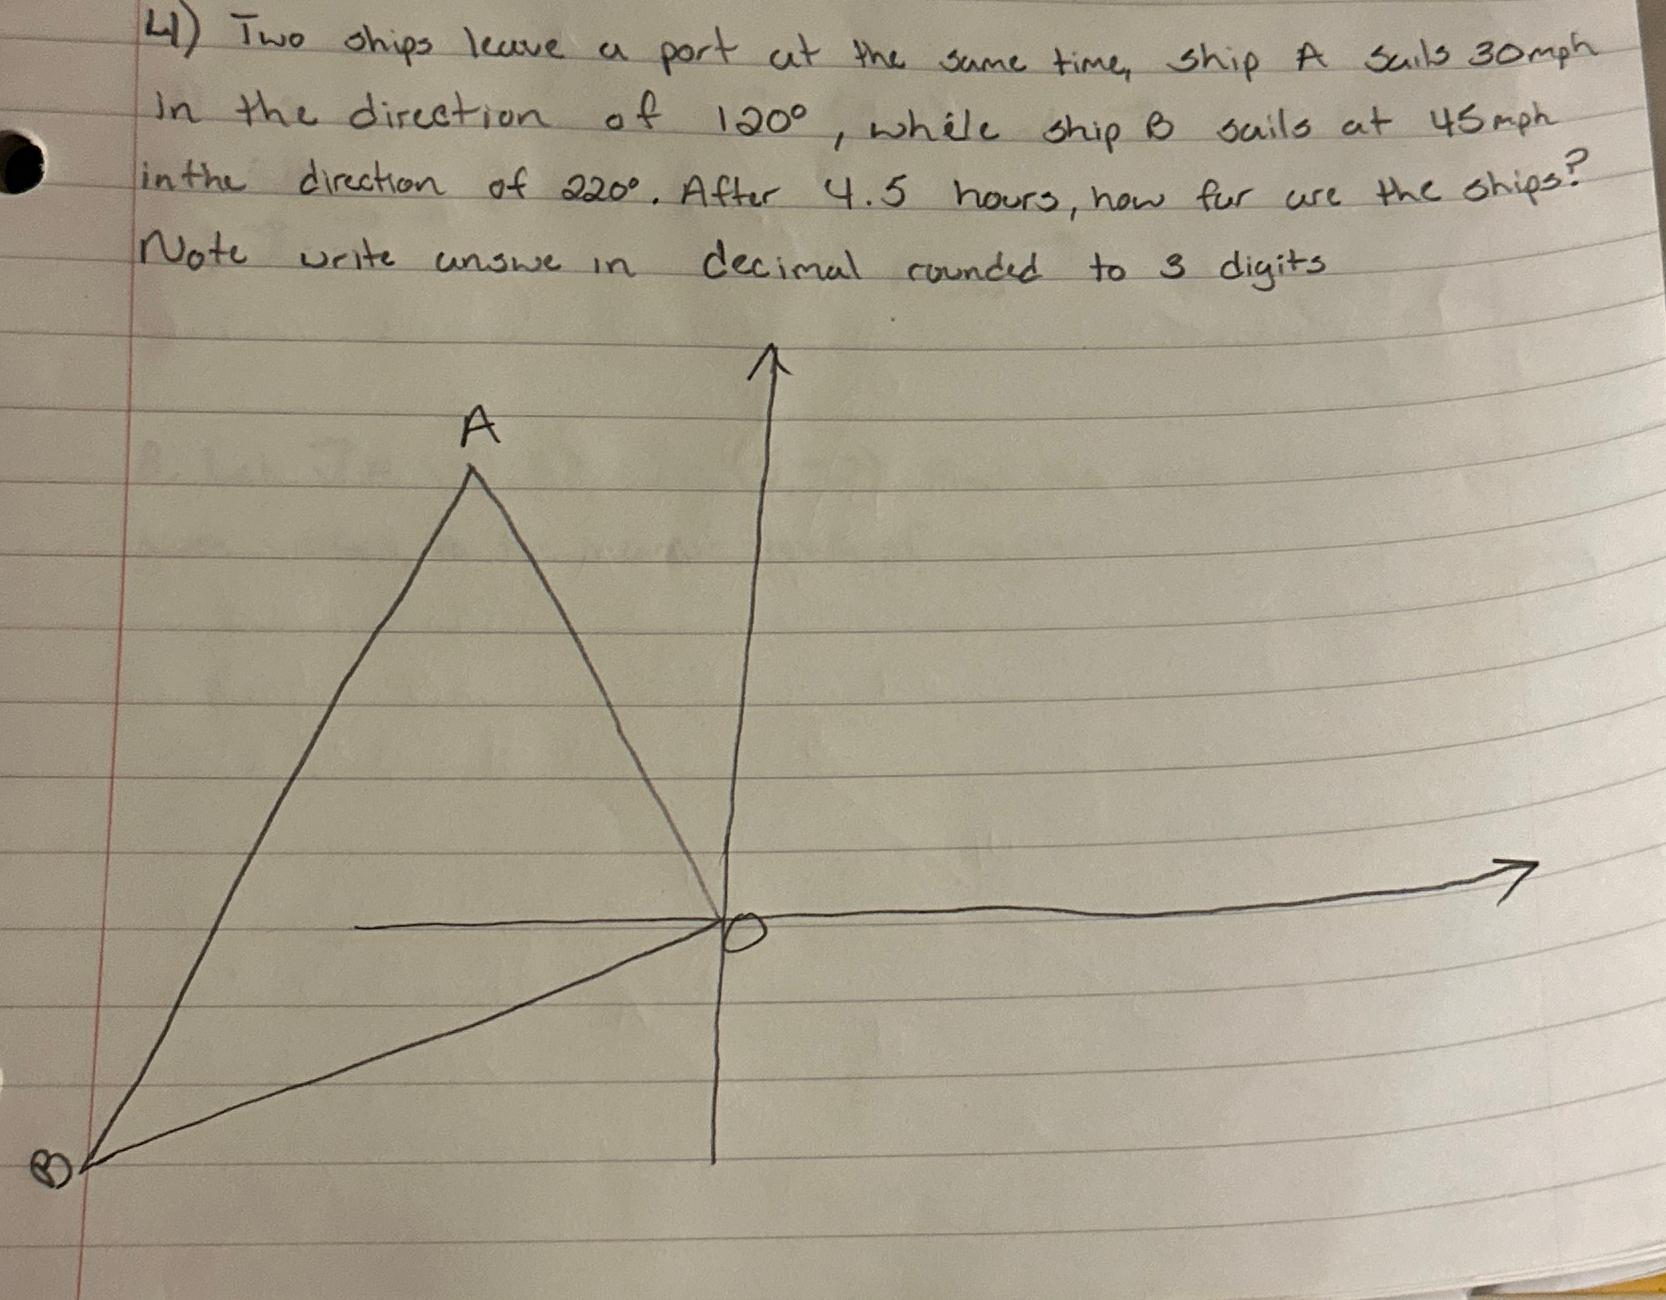 4) Two ships leave a port at the same time, ship A sails 30mph
in the direction of 120°, while ship B sails at 45mph
in the direction of 220°. After 4.5 hours, how far are the ships?
Note write answe in decimal rounded to 3 digits
A
O
B